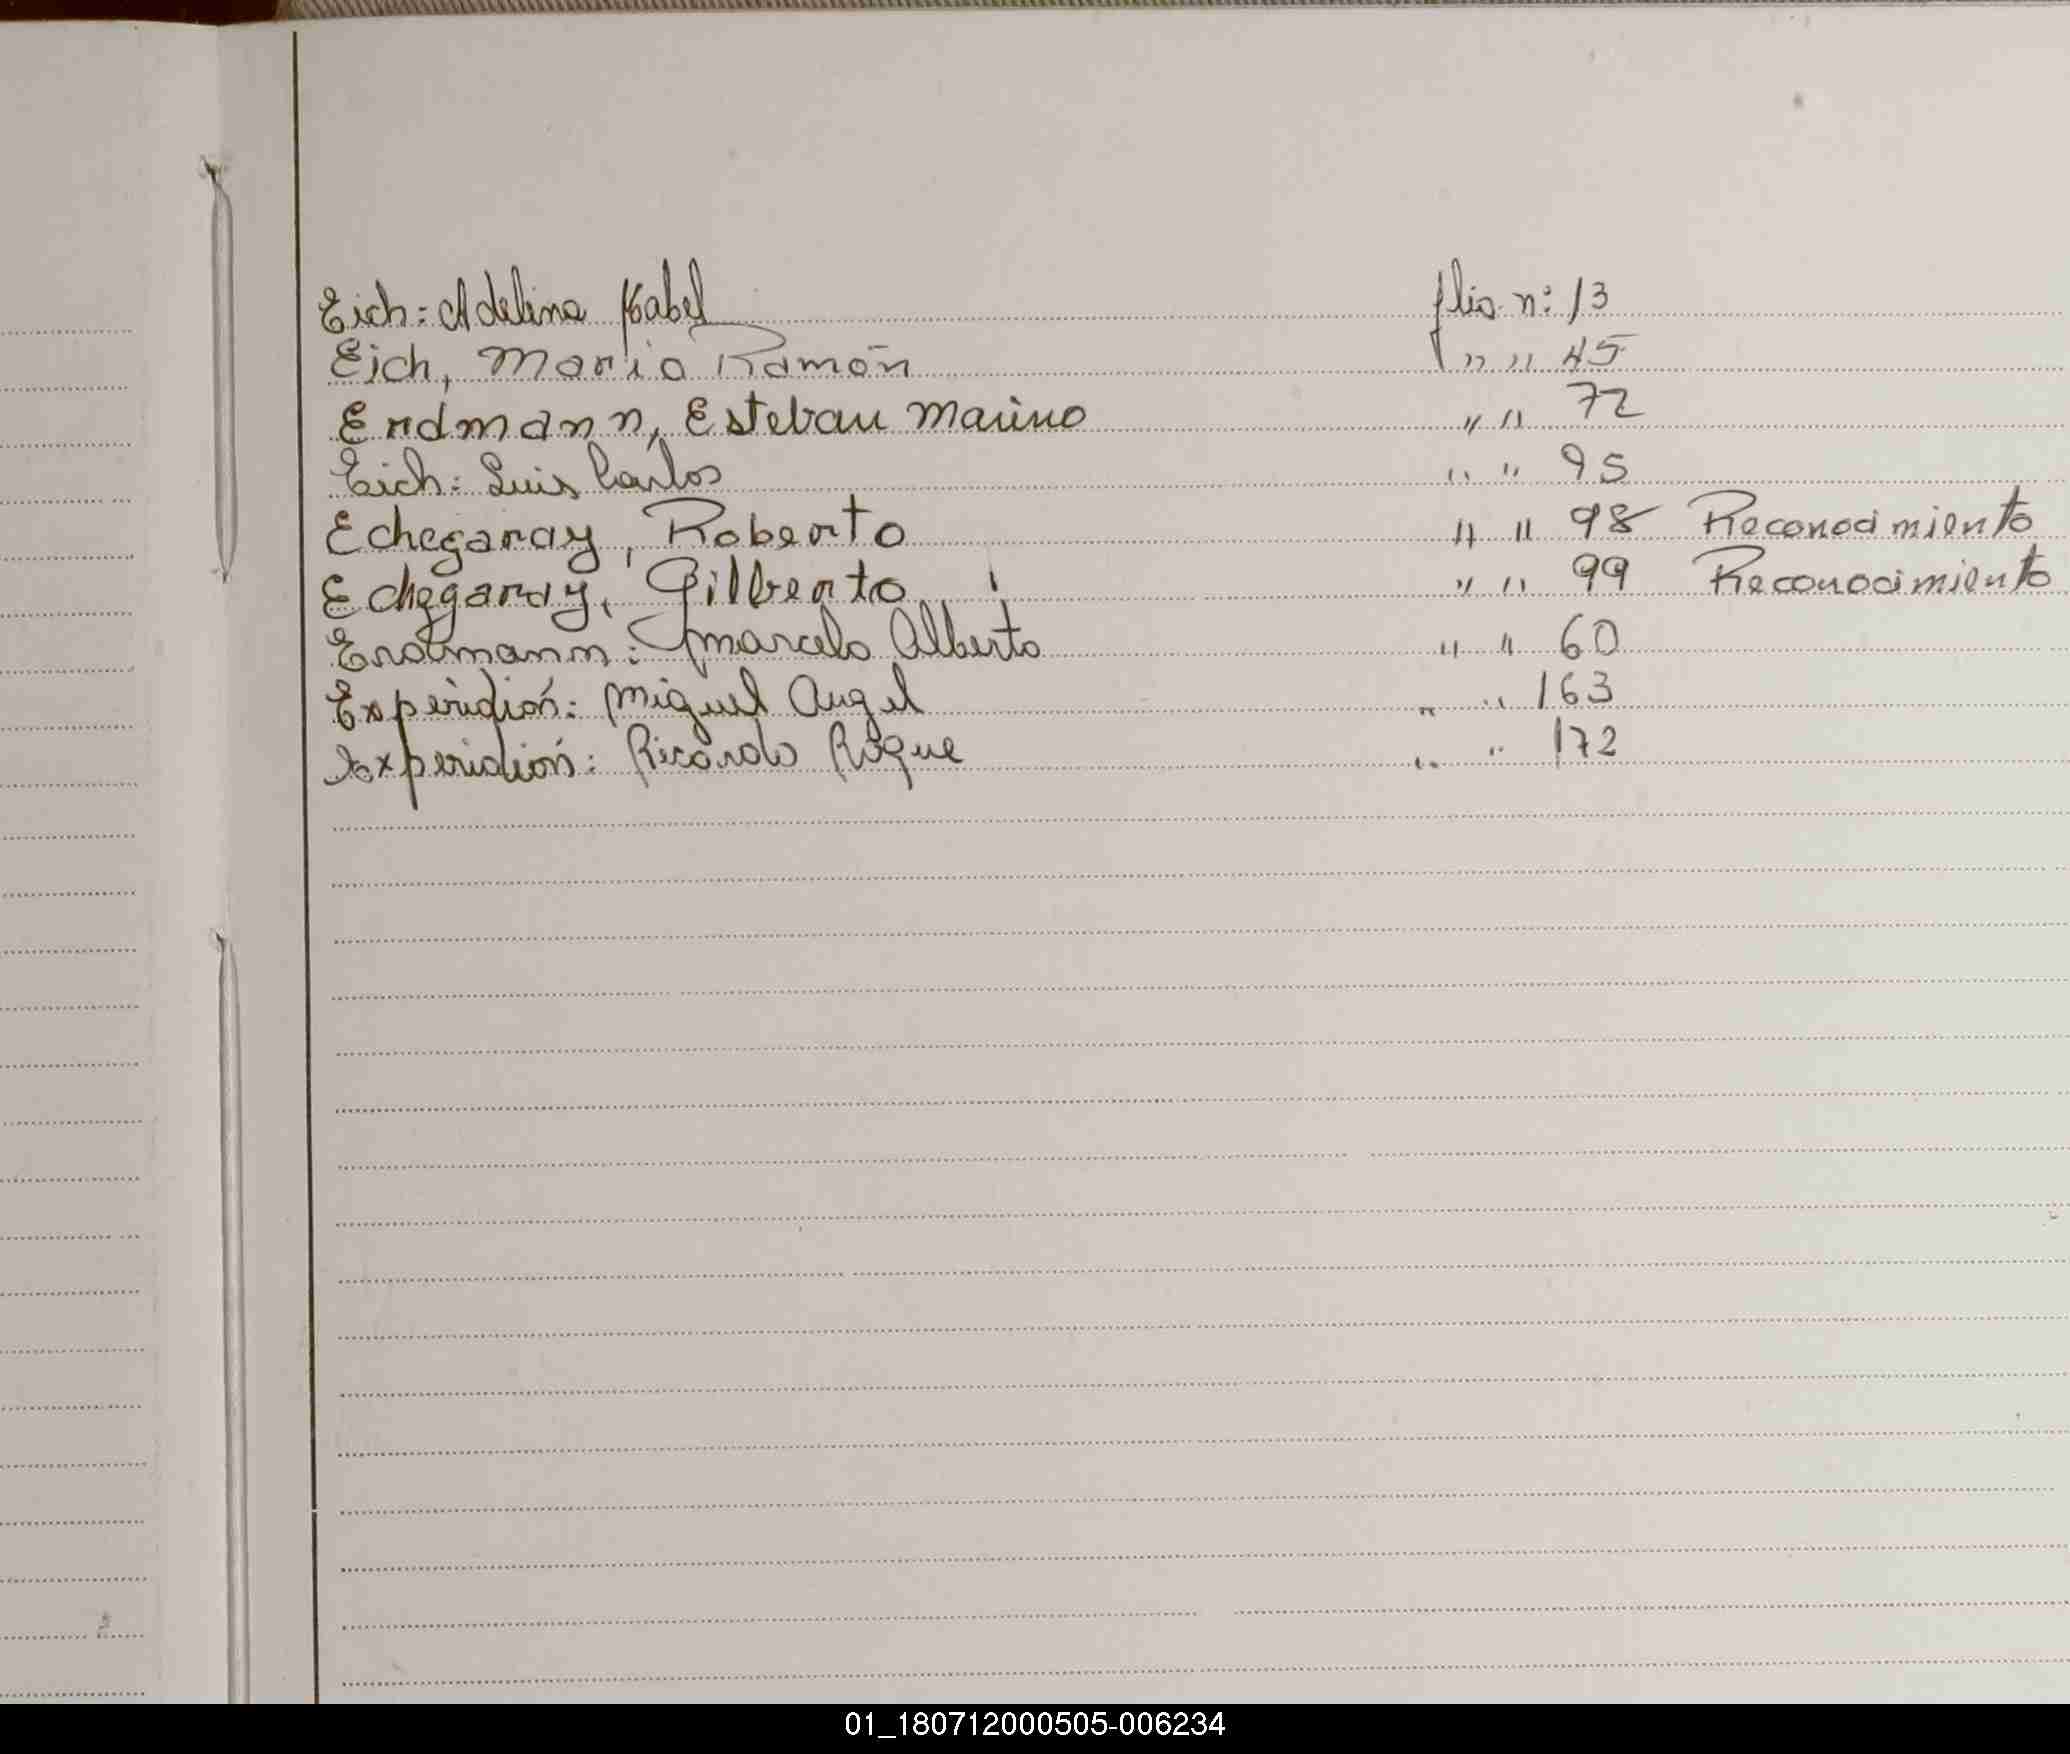 Eich: Adelina Isabel flio n: 13
Eich, Mario Ramón " " 45
Erdmann, Esteban Marino " " 72
Eich: Luis Carlos " " 95
Echegaray, Roberto " " 98 Reconocimiento
Echegaray, Gilberto " " 99 Reconocimiento
Erdmann: Marcelo Alberto " " 60
Experidión: Miguel Angel " " 163
Experidión: Ricardo Roque " " 172
01_180712000505-006234